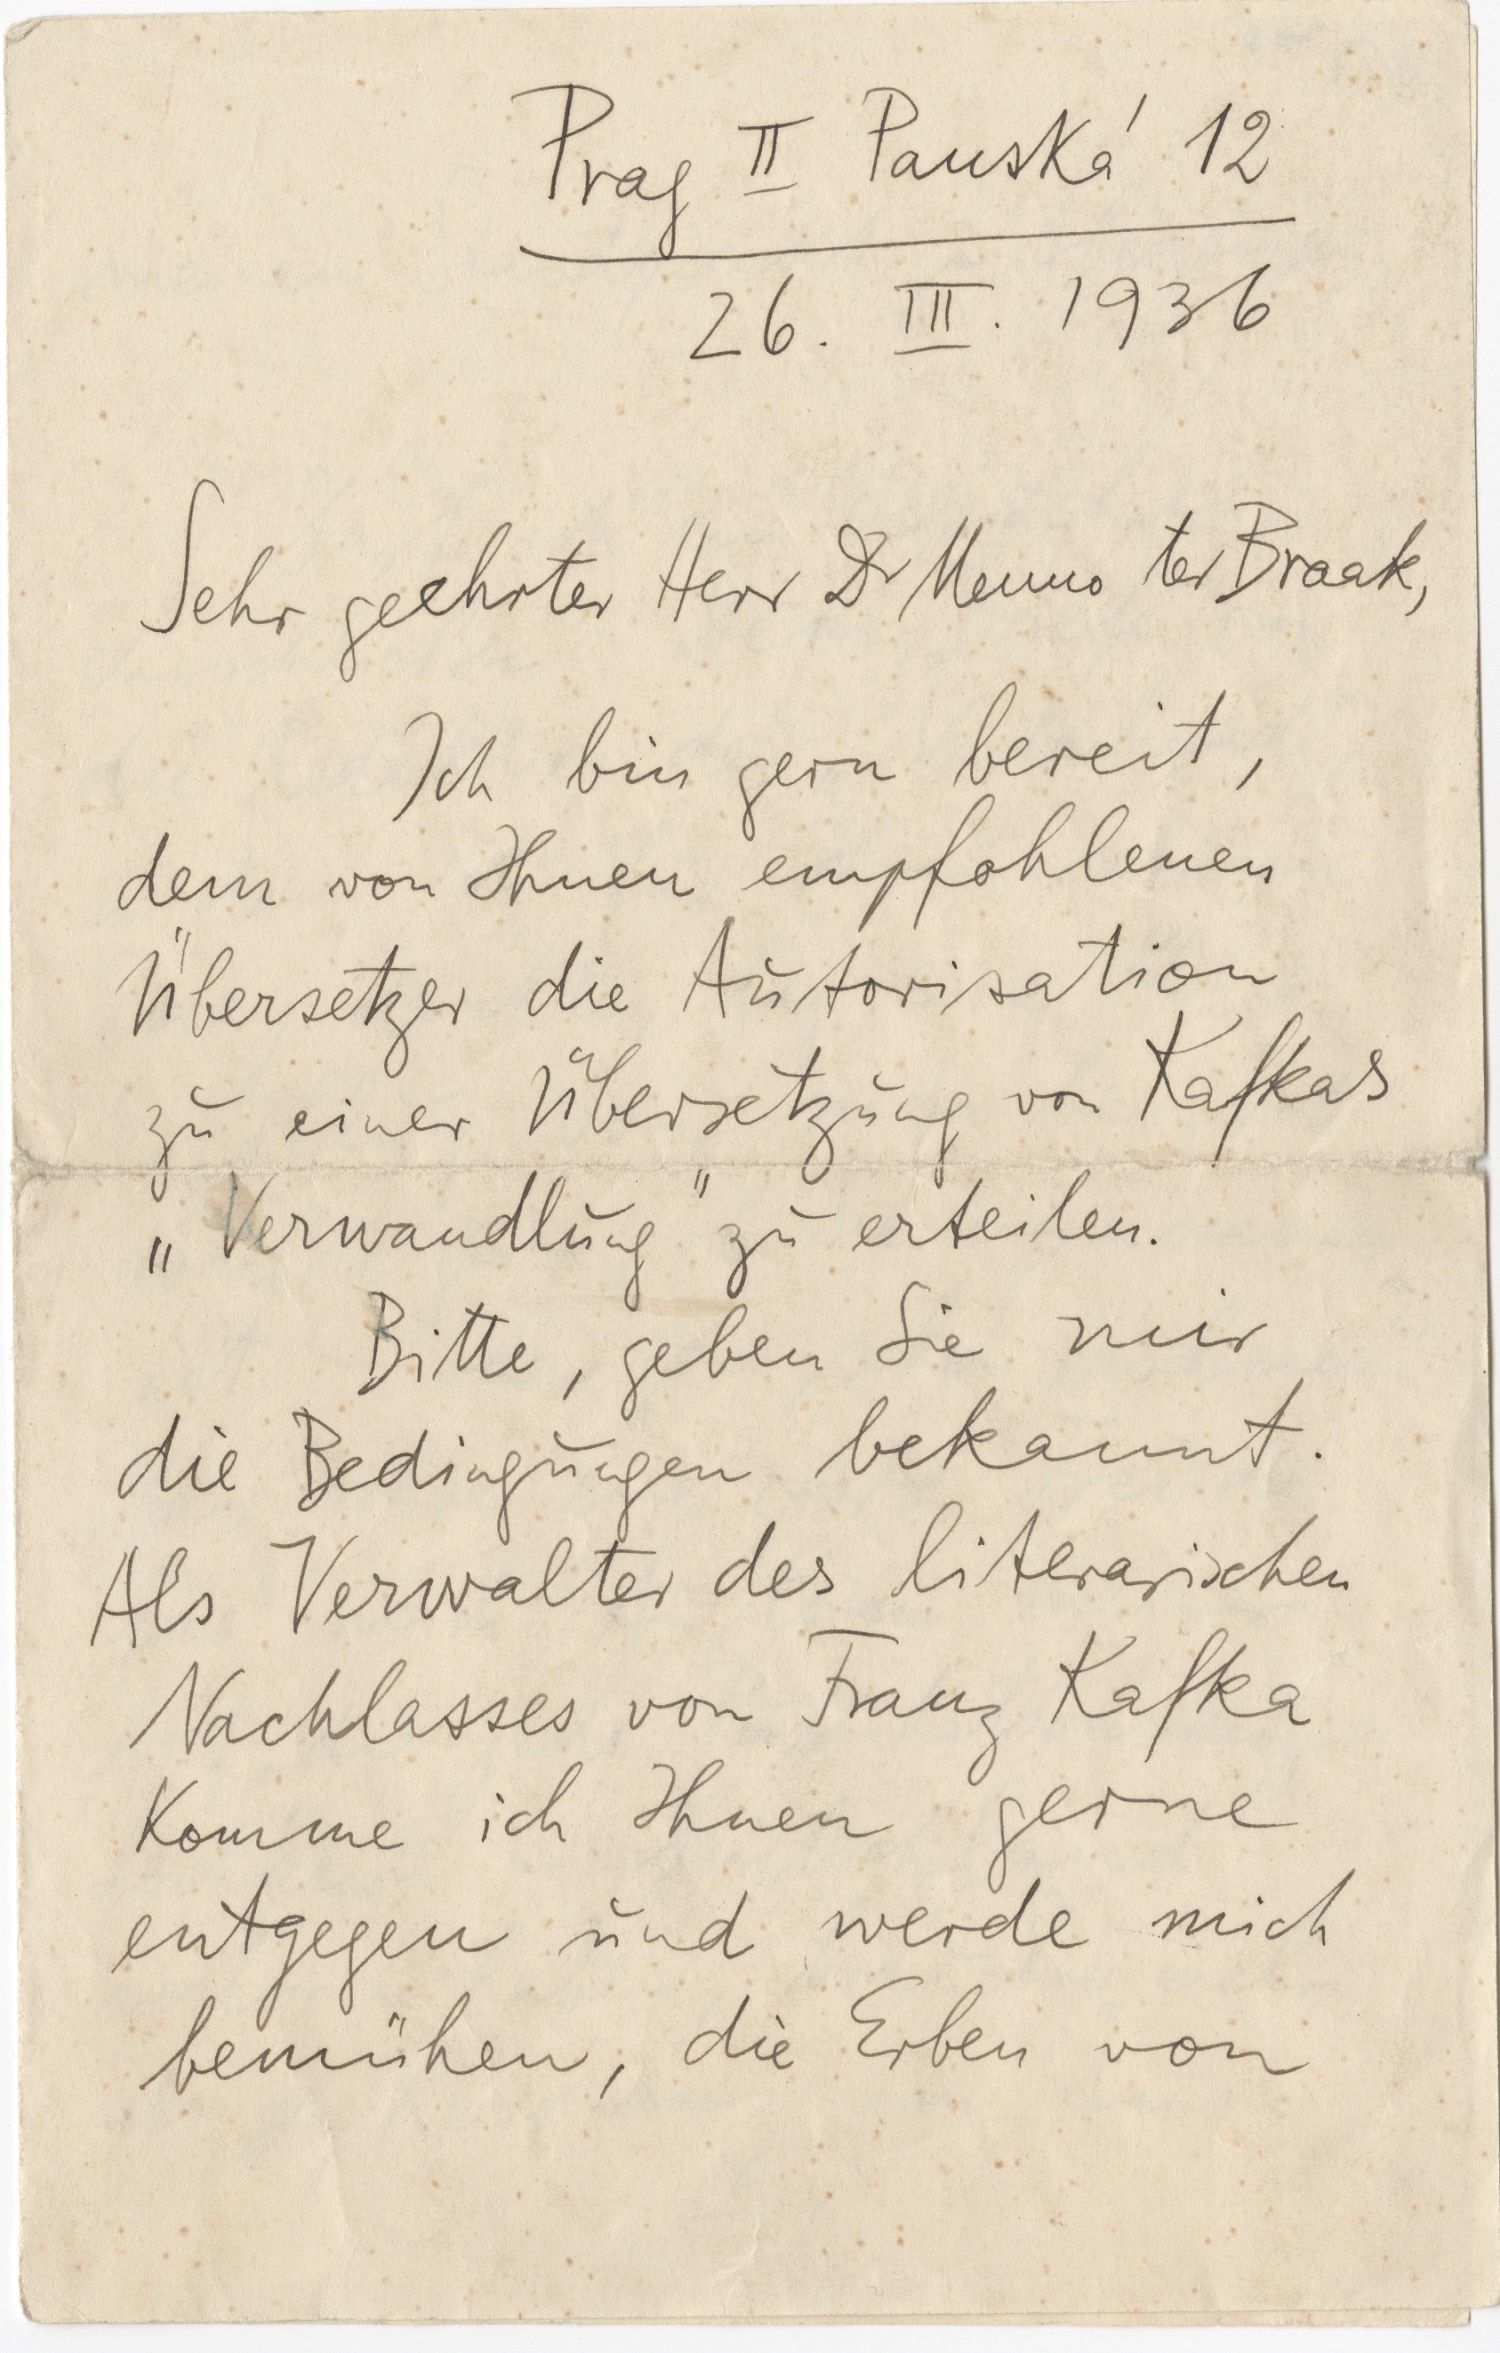 Prag II Panská 12
26. III. 1936
Sehr geehrter Herr Dr Menno ter Braak,
Ich bin gern bereit,
dem von Ihnen empfohlenen
Übersetzer die Autorisation
zu einer Übersetzung von Kafkas
„Verwandlung" zu erteilen.
Bitte, geben Sie mir
die Bedingungen bekannt.
Als Verwalter des literarischen
Nachlasses von Franz Kafka
komme ich Ihnen gerne
entgegen und werde mich
bemühen, die Erben von